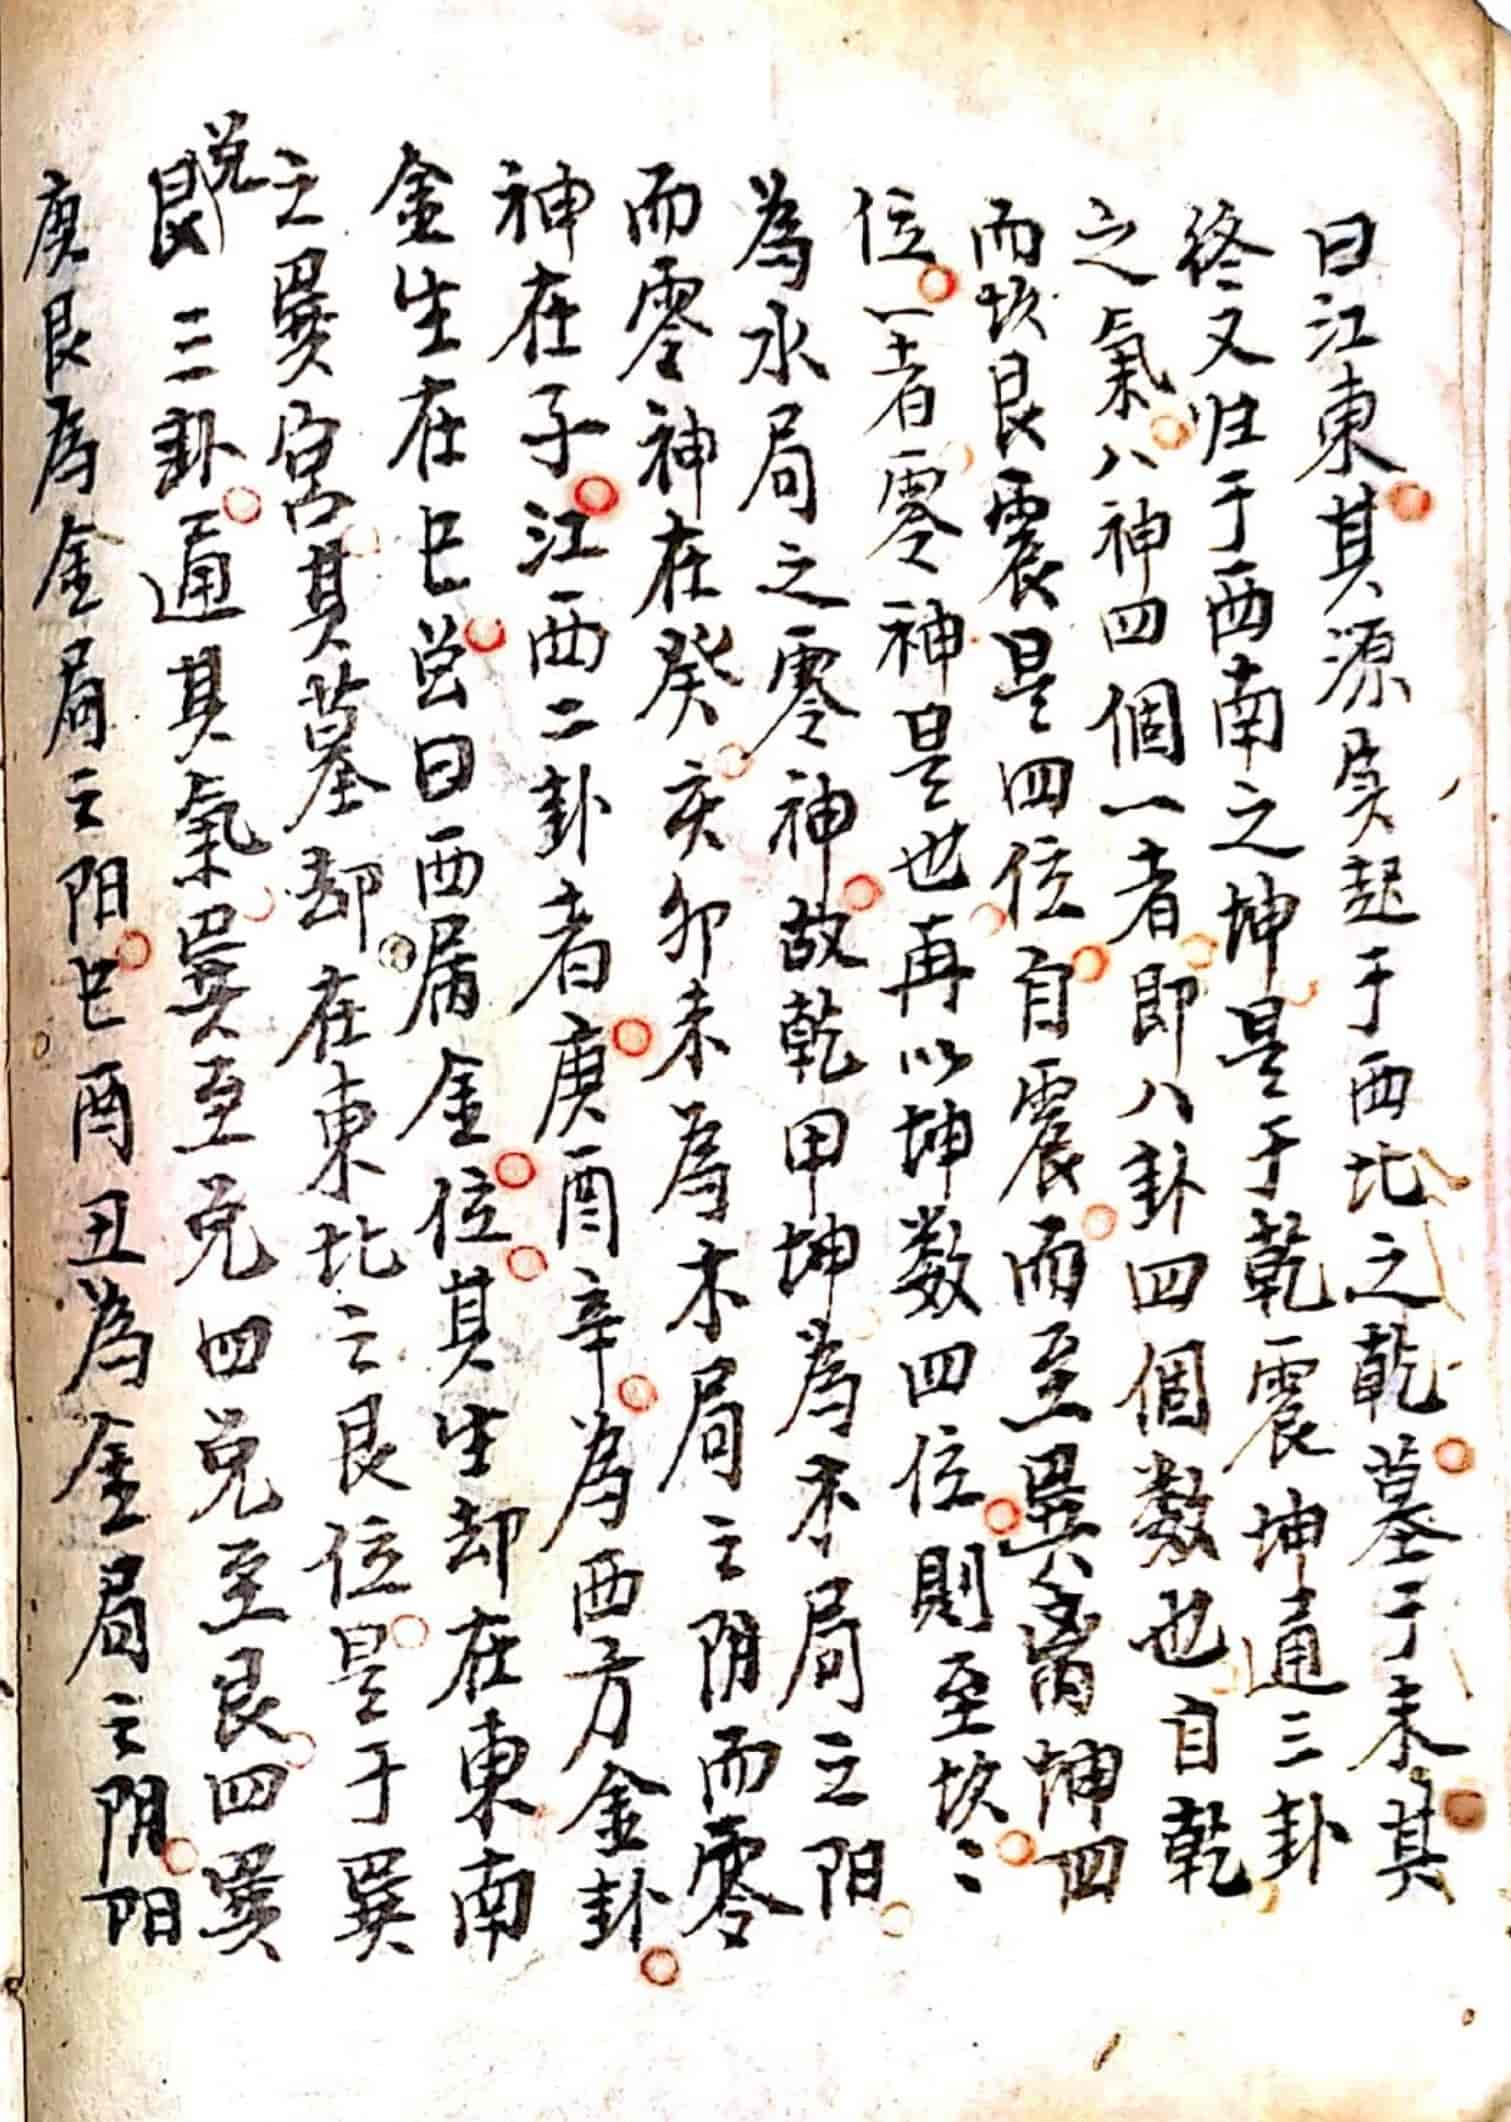 曰江東其源实起于西北之乾墓于未其
终又归于西南之坤是于乾震坤通三卦
之氣八神四個一者即八卦四個数也自乾
而坎艮震是四位自震而至巽离坤四
位一者零神是也再以坤数四位則至坎〻
為水局之零神故乾甲坤為木局之阳
而零神在癸亥卯未為木局之阴而零
神在子江西二卦者庚酉辛為西方金卦
金生在巳曾曰西属金位其生却在東南
之巽宫其墓却在東北之艮位是于巽
兑艮三卦通其氣巽至兑四兑至艮四巽
庚艮為金局之阳巳酉丑為金局之阴阳